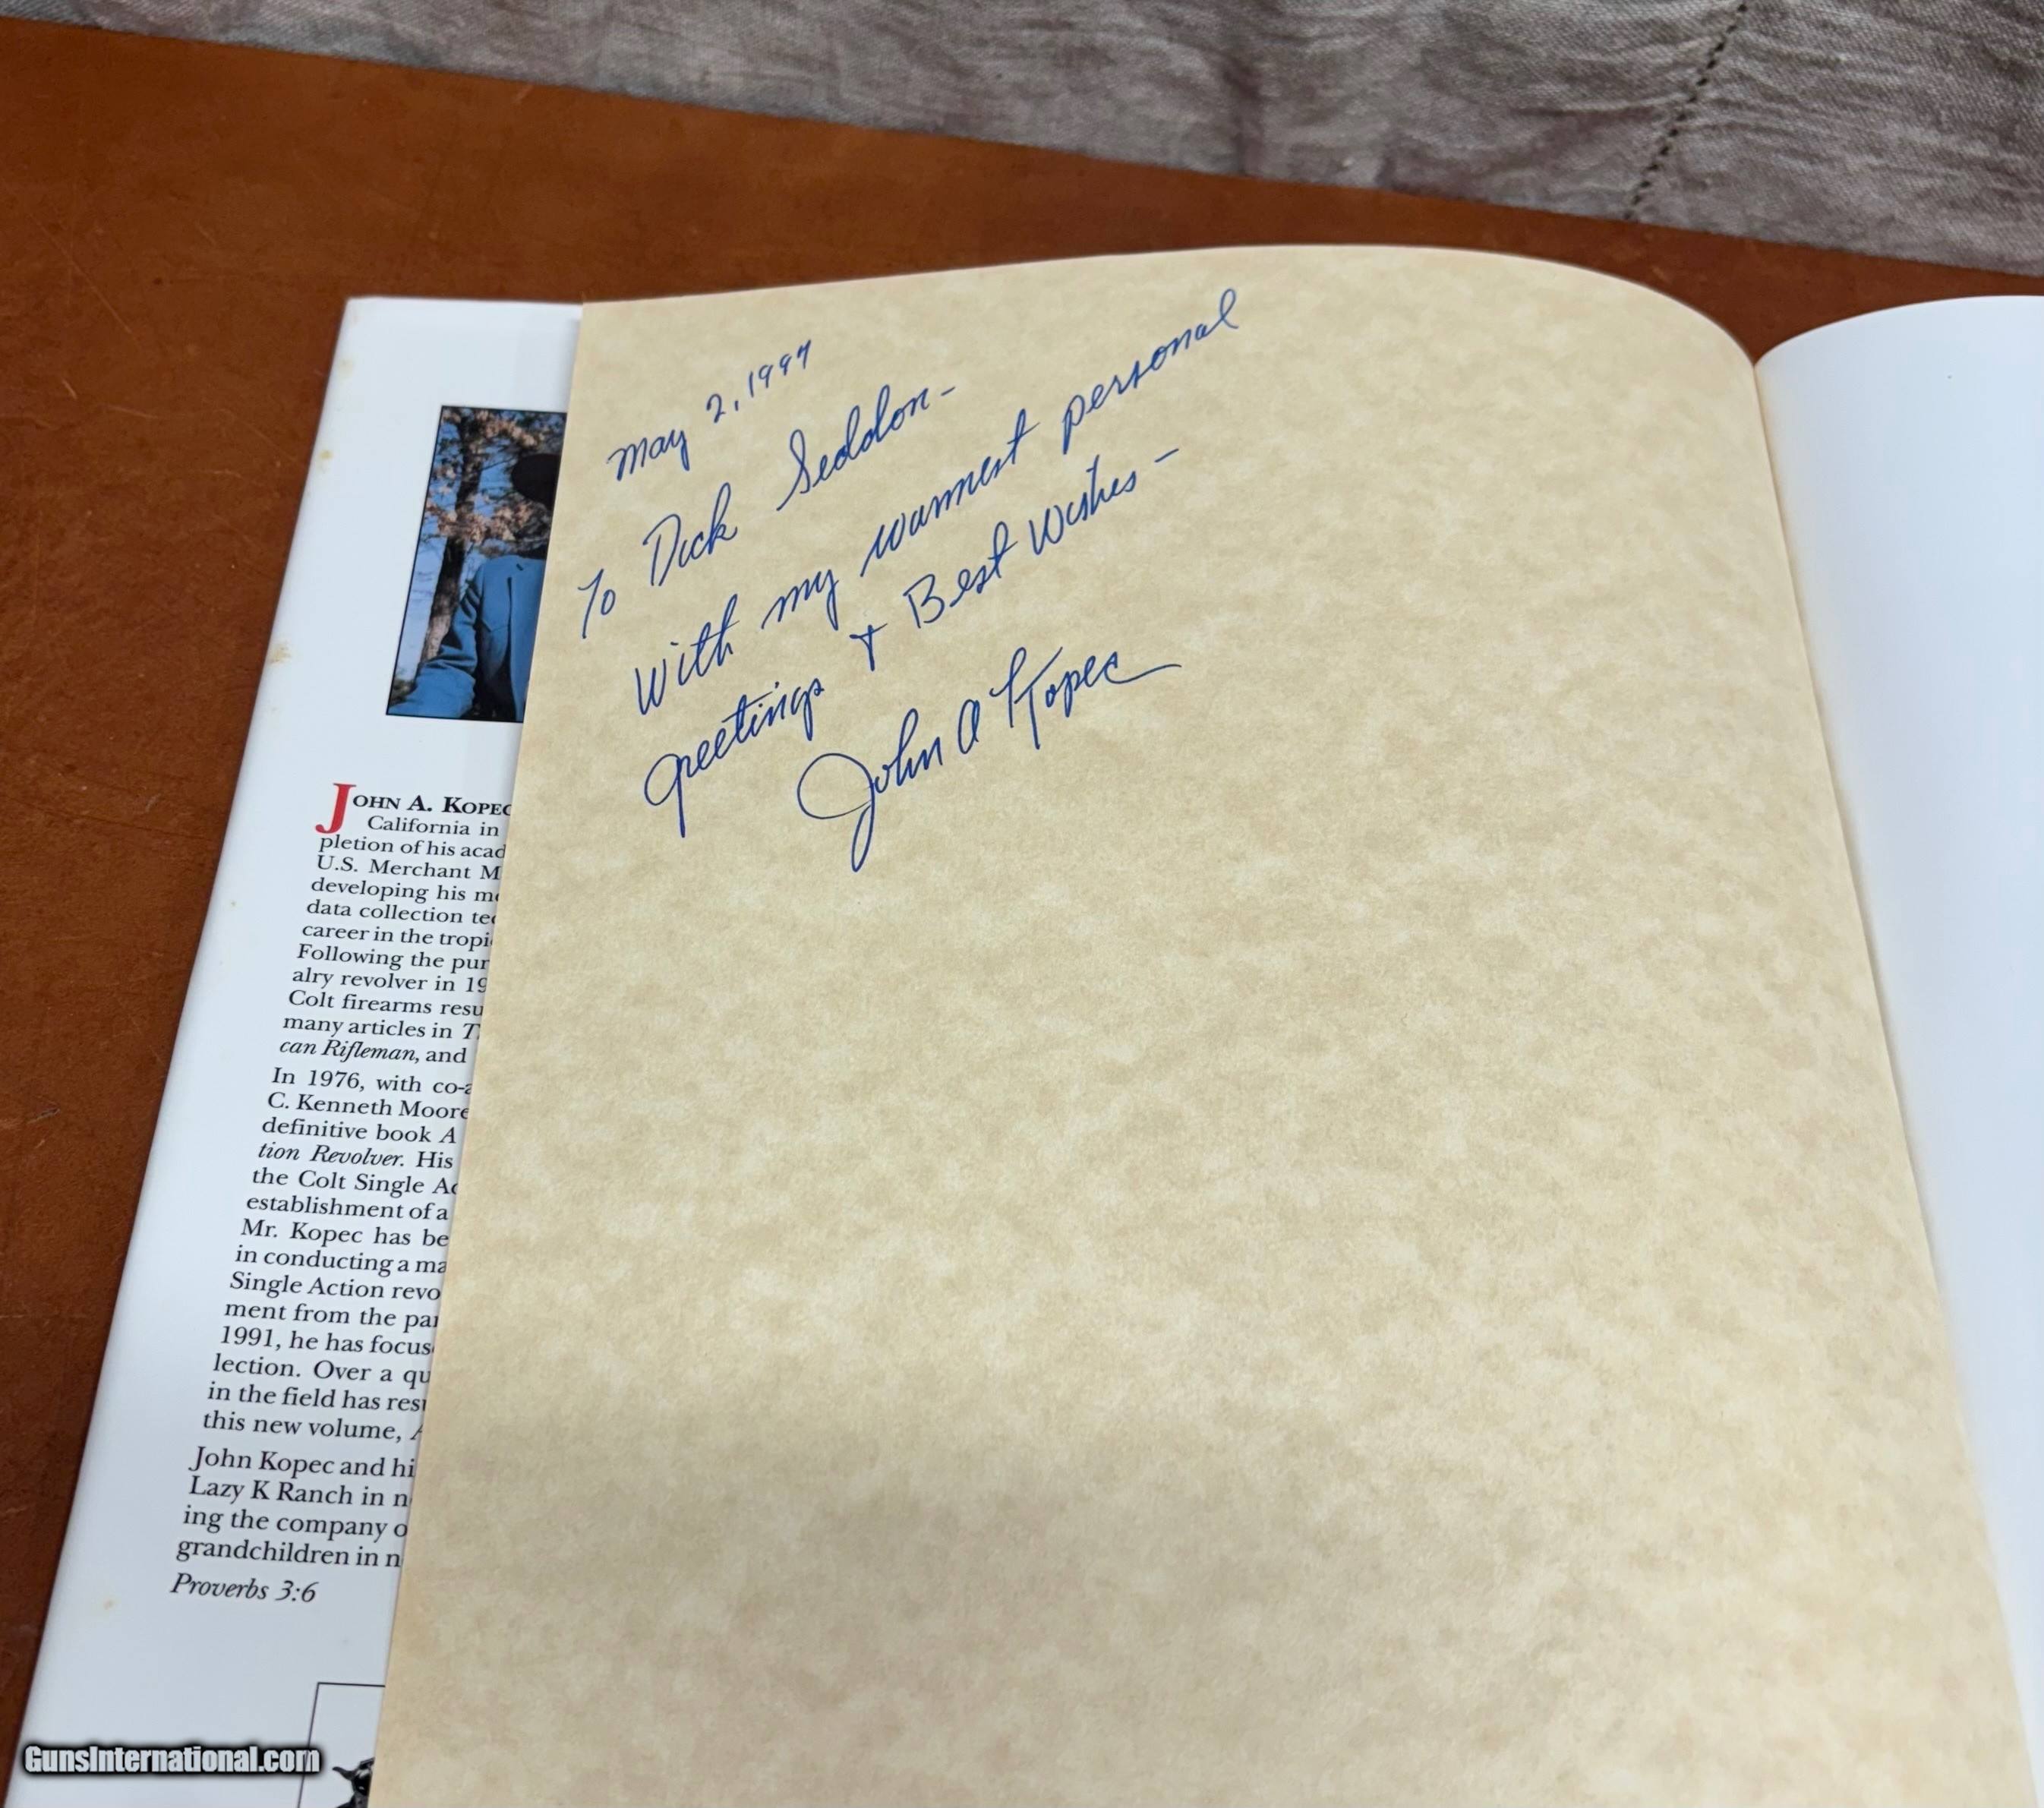 May 2, 1997
To Dick Seddon -
With my warmest personal
greetings + Best Wishes -
John A Kopec
JOHN A. KOPEC
California in
pletion of his acad
U.S. Merchant M
developing his
data collection
career in the
Following the
alry revolver in 19
Colt firearms
many articles in T
can Rifleman, and
In 1976, with
C. Kenneth Moore
definitive book A
tion Revolver. His
the Colt Single
establishment of a
Mr. Kopec has be
in conducting a ma
Single Action revo
ment from the
1991, he has focus
lection. Over a qu
in the field has
this new volume, A
John Kopec and hi
Lazy K Ranch in n
ing the company o
grandchildren in n
Proverbs 3:6
GunsInternational.com